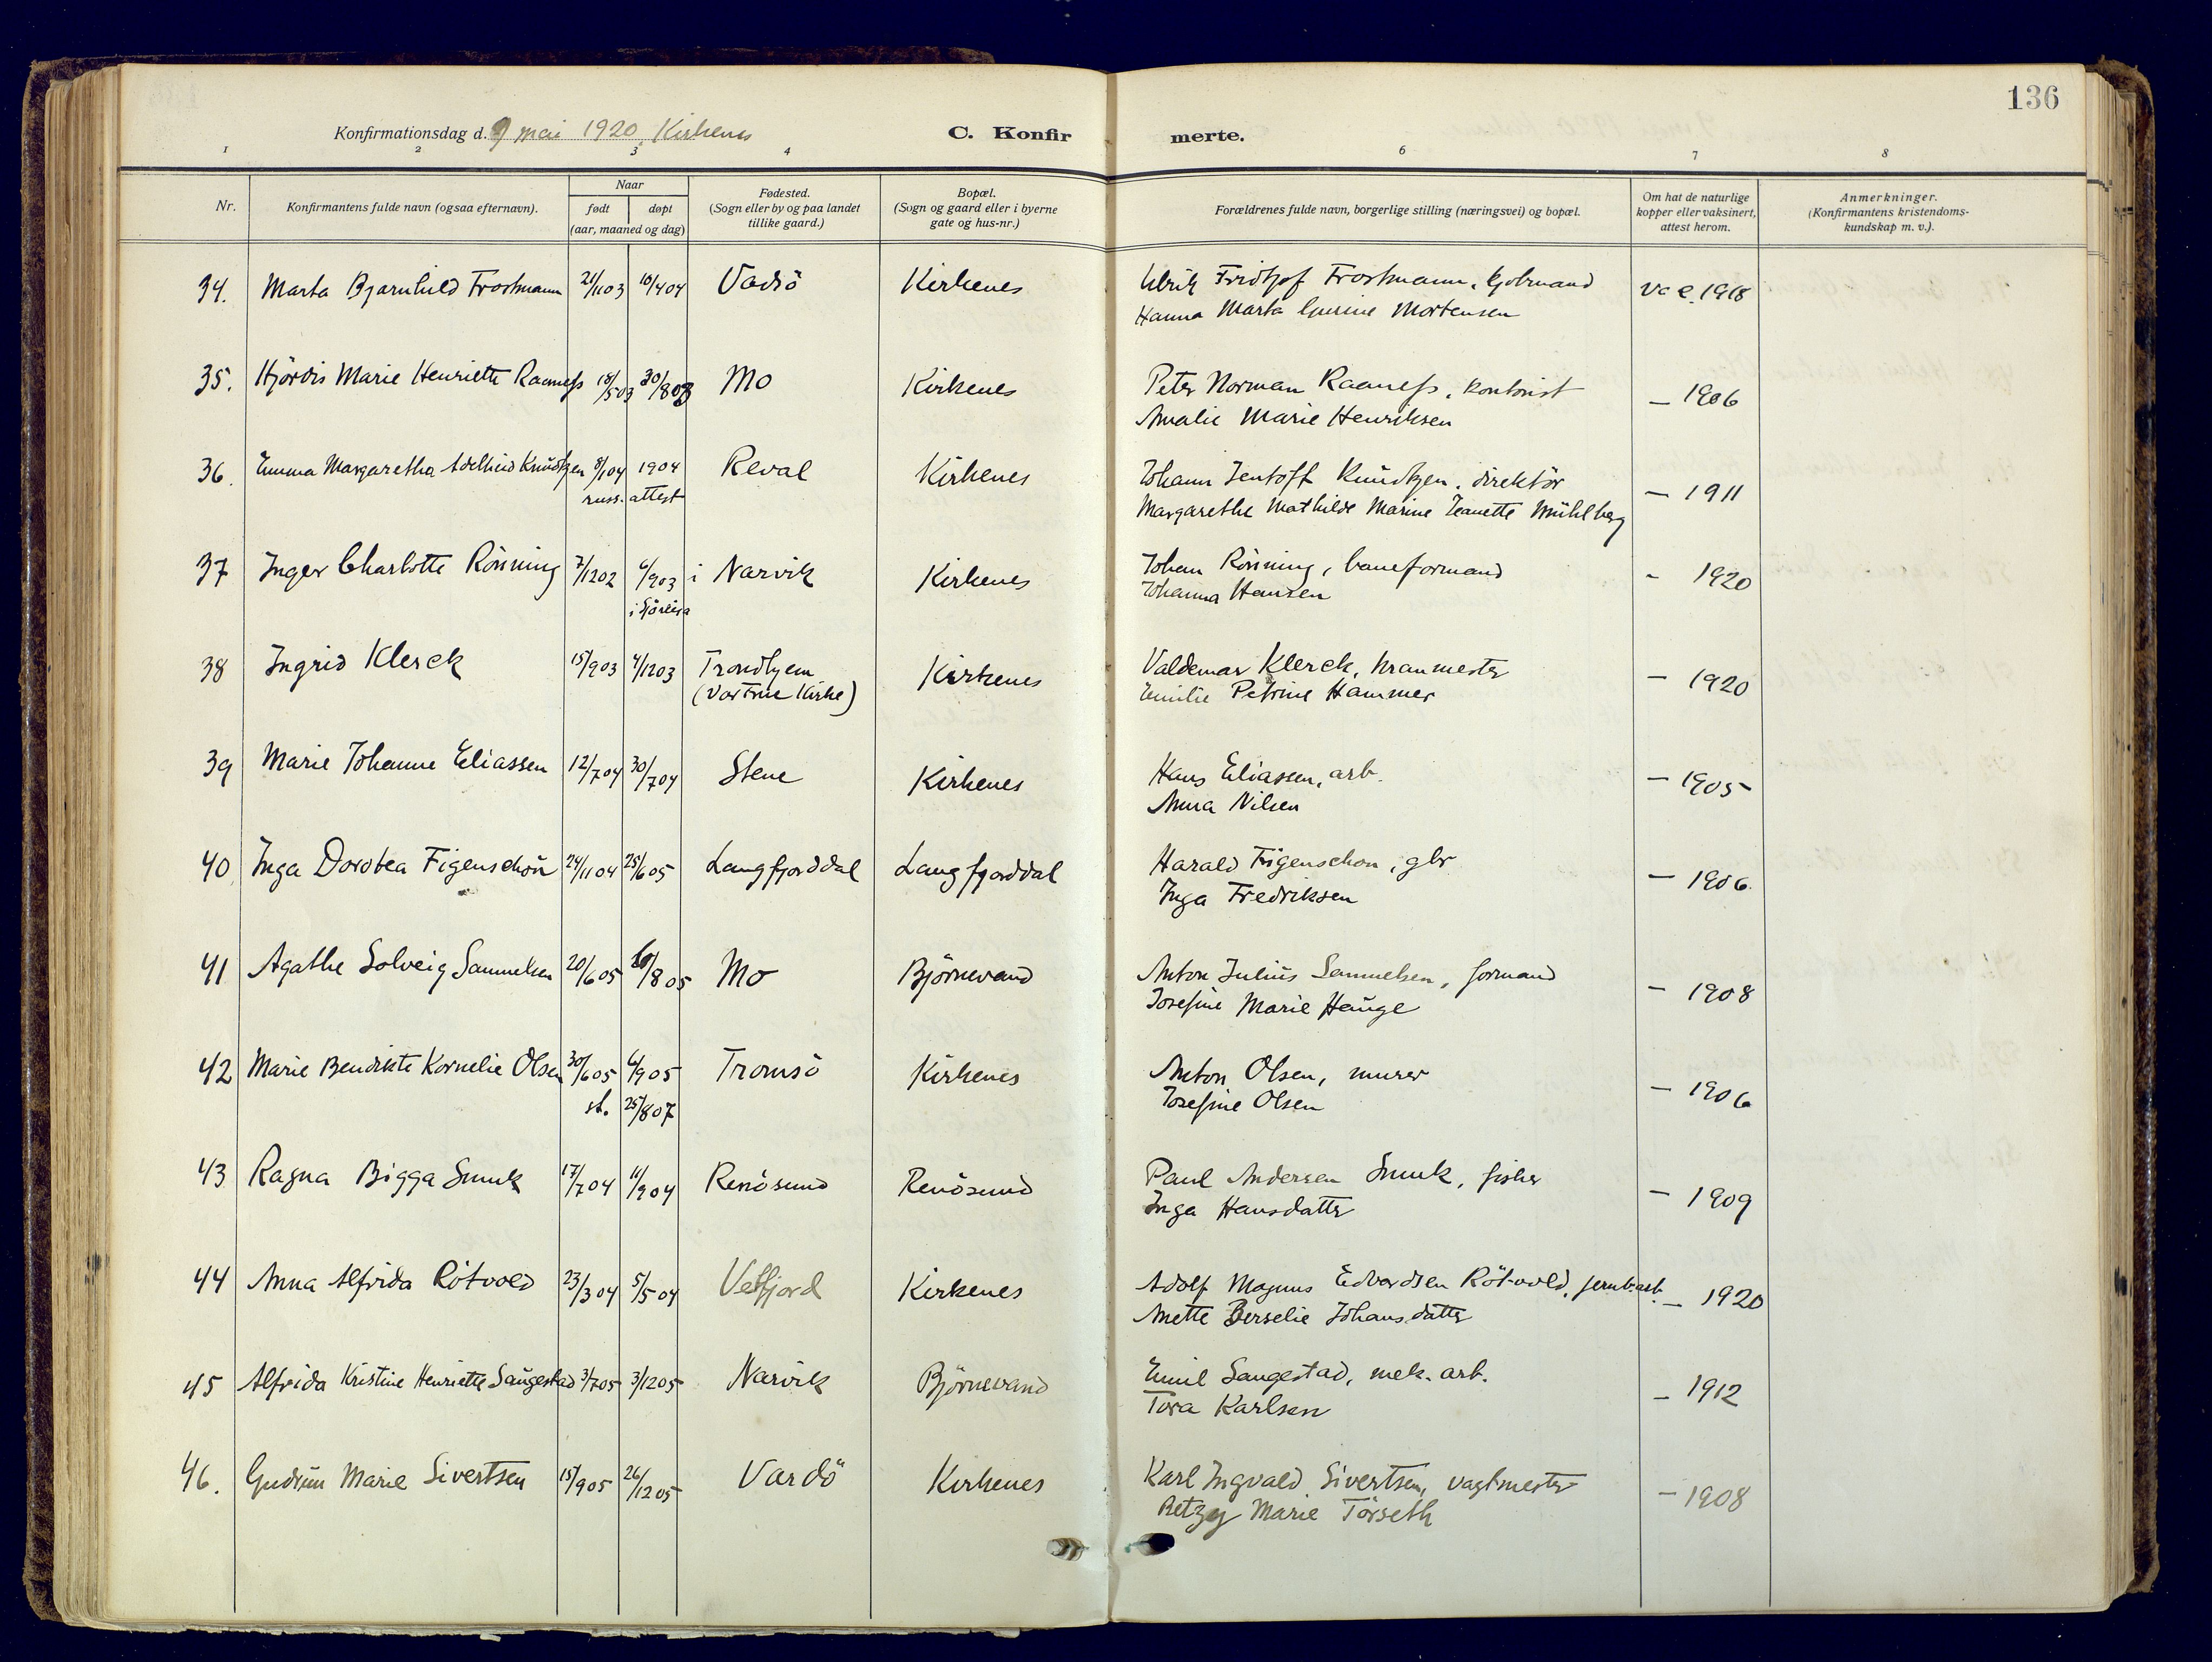 136
Konfirmationsdag d. 9 mai 1920, Kirkenes
C. Konfirmerte.
1 2 3 4 6 7 8
Nr.
Konfirmantens fulde navn (ogsaa efternavn).
Naar
født døpt
(aar, maaned og dag)
Fødested.
(Sogn eller by og paa landet
tillike gaard.)
Bopæl.
(Sogn og gaard eller i byerne
gate og hus-nr.)
Forældrenes fulde navn, borgerlige stilling (næringsvei) og bopæl.
Om hat de naturlige
kopper eller vaksinert,
attest herom.
Anmerkninger.
(Konfirmantens kristendoms-
kundskap m. v.).
34. Marta Bjarnhild Trostmann 21/1103 10/404 Vadsö Kirkenes Ulrik Fridtjof Trostmann, vac. 1918
Hanna Marta Mortensen
35. Hjördis Marie Henriette Raanefs 18/503 30/803 Mo Kirkenes Peter Norman Raanefs, kontorist — 1906
Amalie Marie Henriksen
36. Emma Margaretha Adelheid Knüdtzen 8/104 1904 Reval Kirkenes Johann Jentoft Knüdtzen, direktör — 1911
russ. attest Margarethe Mathilde Marine Jeanette Mühlberg
37 Inger Charlotte Rönning 7/1202 6/903 i Narvik Kirkenes Johan Rönning, baneformand - 1920
i Sjöreisa Johanna Hansen
38 Ingrid Klerck 15/903 4/1203 Trondhjem Kirkenes Valdemar Klerck, kranmester — 1920
(Vor Frue Kirke) Emilie Petrine Hammer
39 Marie Johanne Eliassen 12/704 30/704 Stene Kirkenes Hans Eliassen, arb. — 1905
Anna Nilsen
40 Inga Dorotea Figenschou 24/1104 25/605 Langfjorddal Langfjorddal Harald Figenschou, gbr — 1906.
Inga Fredriksen
41 Agathe Solveig Samuelsen 20/605 /805 Mo Björnevand Anton Julius Samuelsen, formand — 1908
Josefine Marie Hauge
42 Marie Bendikte Kornelie Olsen 30/605 6/905 Tromsö Kirkenes Anton Olsen, murer — 1906
st. 25/807 Josefine Olsen
43 Ragna Bigga Smuk 17/704 11/904 Renösund Renösund Paul Andersen Smuk, fisker — 1909
Inga Hansdatter
44 Anna Alfrida Rötvold 23/304 5/504 Vefsfjord Kirkenes Adolf Magnus Edvardsen Rötvold, jernb.arb. — 1920
Anette Berselie Johansdatter
45 Alfrida Kristine Henriette Saugestad 3/705 3/1205 Narvik Björnevand Emil Saugestad, mek. arb. — 1912
Tora Karlsen
46. Gudrun Marie Sivertsen 15/905 26/1205 Vardö Kirkenes Karl Ingvald Sivertsen, vagtmester — 1908
Betzy Marie Törseth